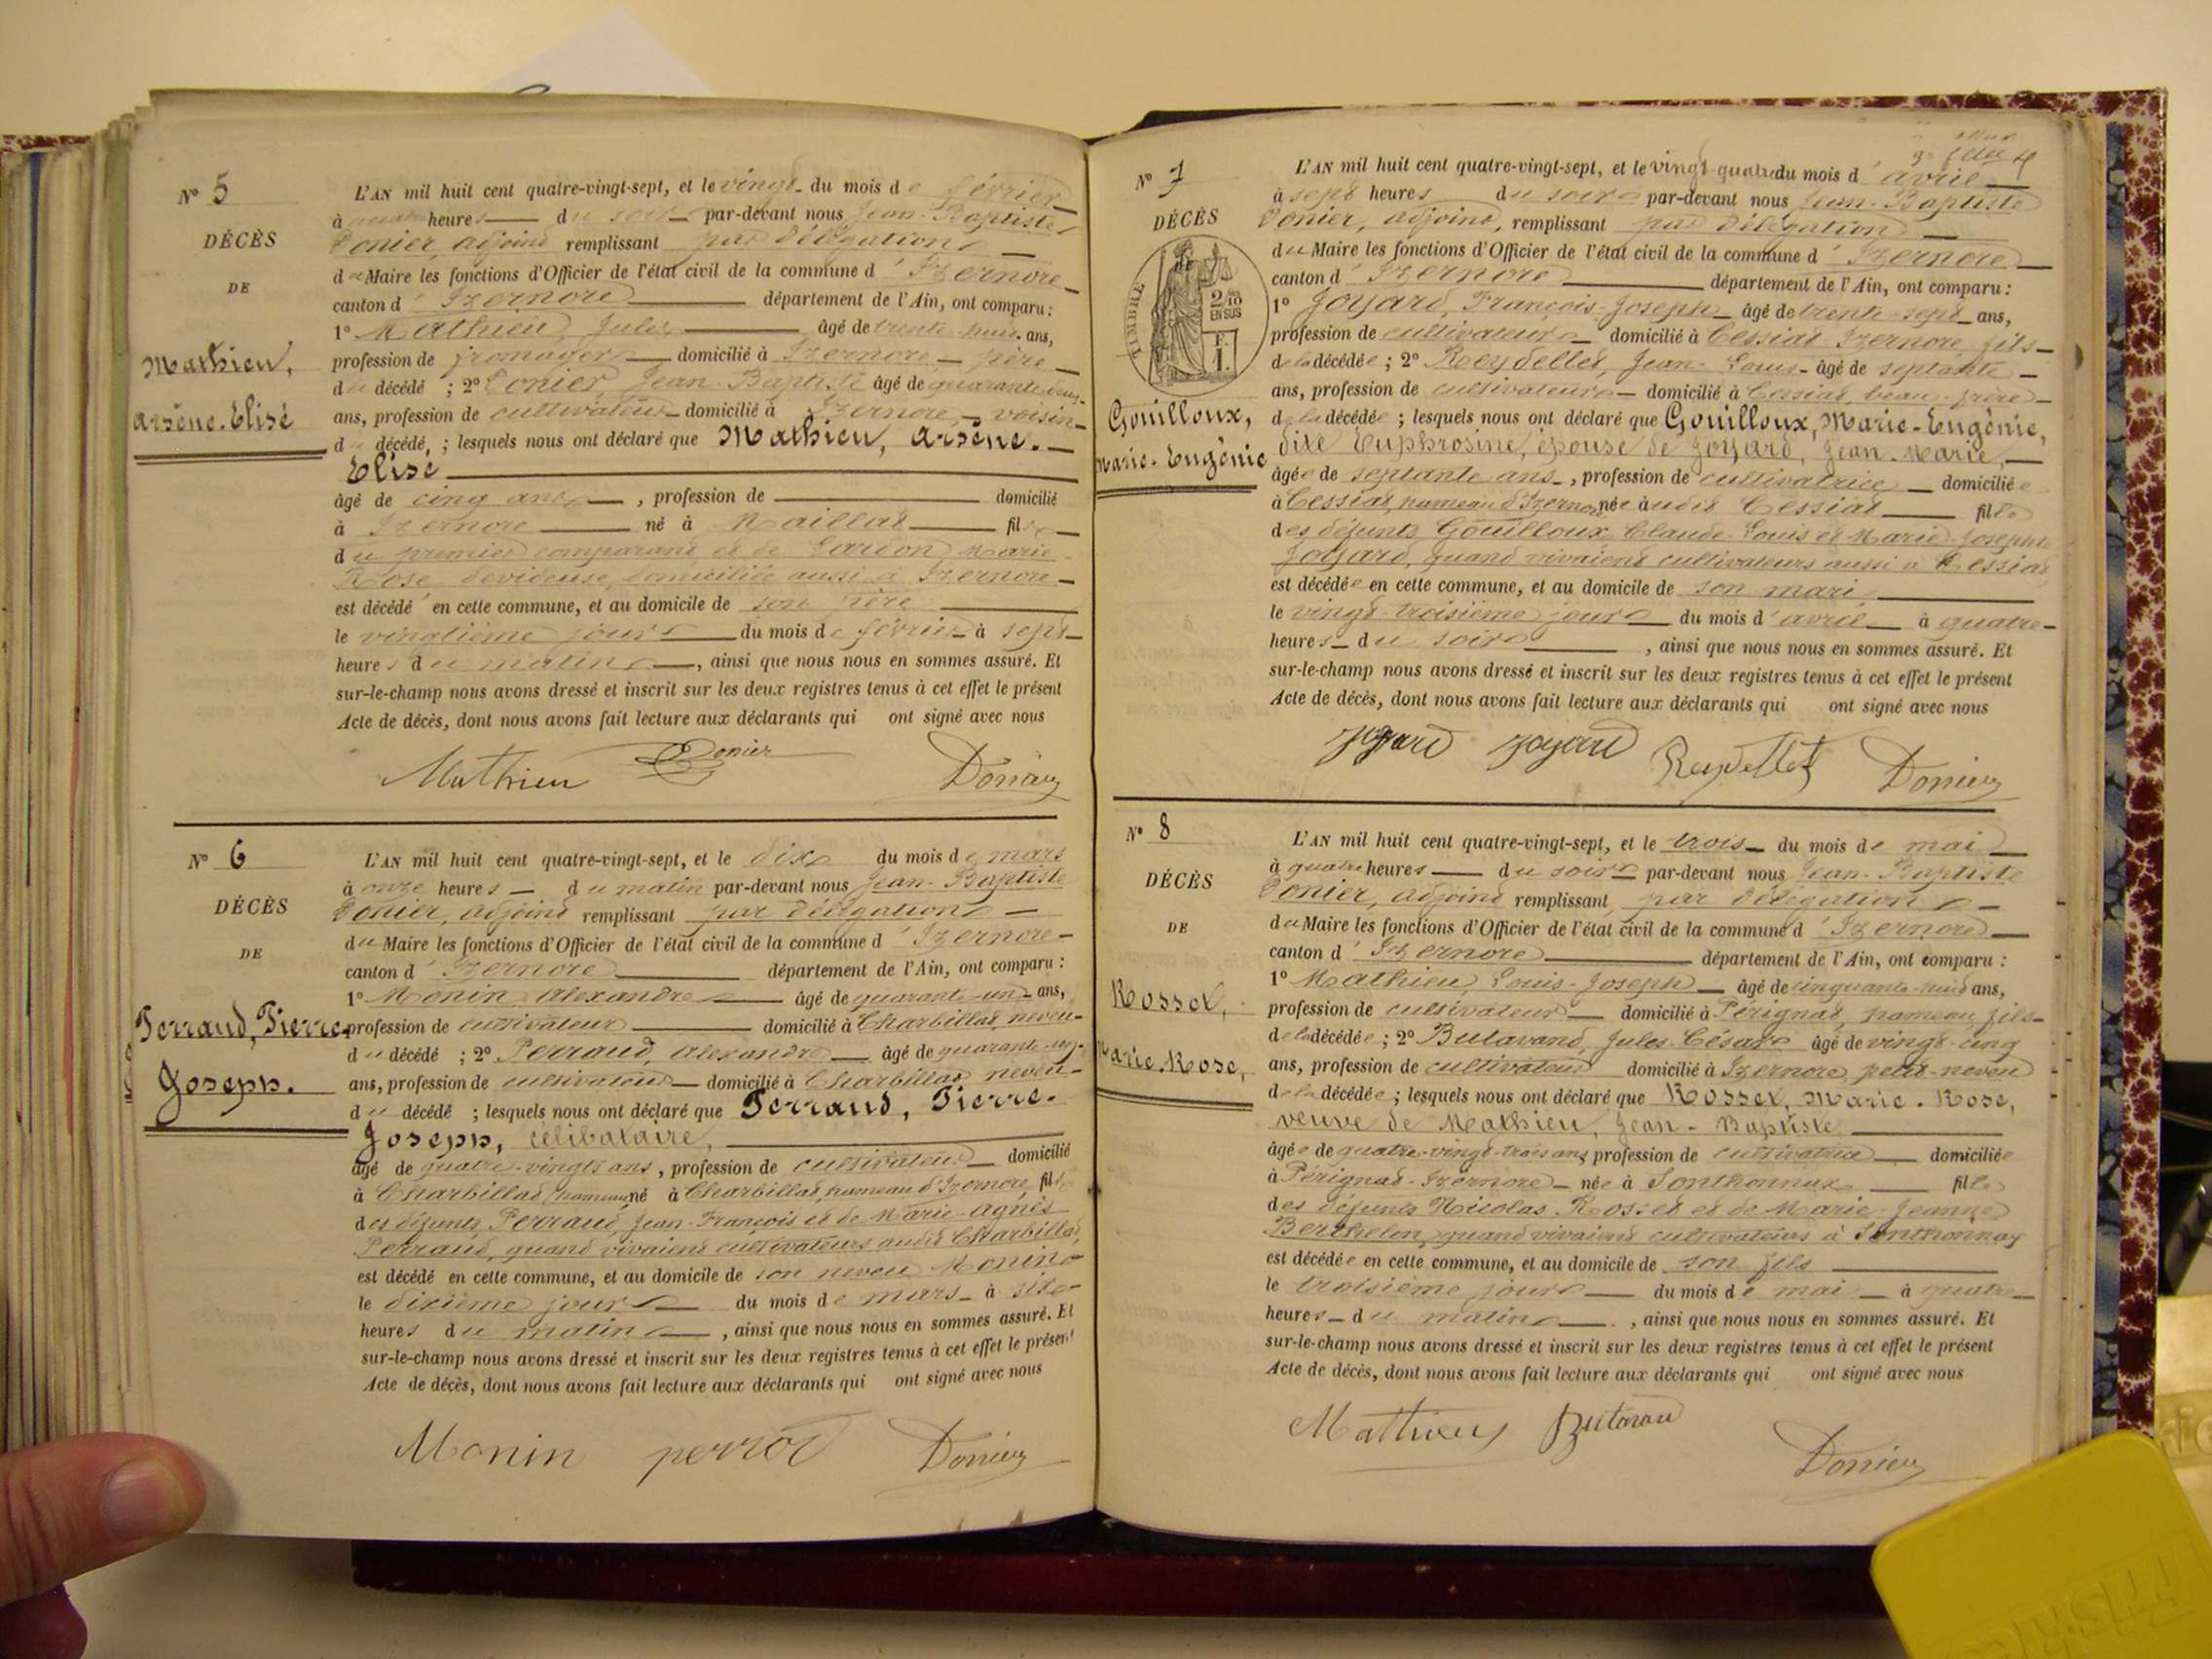 N° 5
DÉCÈS
DE
Mathieu,
Arsène-Elisé
L'AN mil huit cent quatre-vingt-sept, et le vingt du mois de février
à quatre heures du soir par-devant nous Jean-Baptiste
Donier, adjoint remplissant par délégation
du Maire les fonctions d'Officier de l'état civil de la commune d'Izernore
canton d'Izernore département de l'Ain, ont comparu :
1° Mathieu, Jules âgé de trente-huit ans,
profession de fromager domicilié à Izernore père
du décédé ; 2° Donier, Jean-Baptiste âgé de quarante-deux
ans, profession de cultivateur domicilié à Izernore, voisin
du décédé, ; lesquels nous ont déclaré que Mathieu, Arsène-
Elisé
âgé de cinq ans, profession de domicilié
à Izernore né à Maillat fils
du premier comparant et de Marie
Rose, devideuse, domiciliée aussi à Izernore
est décédé en cette commune, et au domicile de son père
le vingtième jour du mois de février à sept
heures du matin, ainsi que nous nous en sommes assuré. Et
sur-le-champ nous avons dressé et inscrit sur les deux registres tenus à cet effet le présent
Acte de décès, dont nous avons fait lecture aux déclarants qui ont signé avec nous
Mathieu Donier Donier
N° 6
DÉCÈS
DE
Perraud, Pierre-
Joseph.
L'AN mil huit cent quatre-vingt-sept, et le dix du mois de mars
à onze heures du matin par-devant nous Jean-Baptiste
Donier, adjoint remplissant par délégation
du Maire les fonctions d'Officier de l'état civil de la commune d'Izernore
canton d'Izernore département de l'Ain, ont comparu :
1° Monin, Alexandre âgé de quarante-un ans,
profession de cultivateur domicilié à Charbillat, neveu
du décédé ; 2° Perraud, Alexandre âgé de quarante-un
ans, profession de cultivateur domicilié à Charbillat neveu
du décédé ; lesquels nous ont déclaré que Perraud, Pierre-
Joseph, célibataire,
âgé de quatre-vingts ans, profession de cultivateur domicilié
à Charbillat, hameau, né à Charbillat, hameau d'Izernore, fils
des défunts Perraud, Jean-François et de Marie-Agnès
Perraud, quand vivaient cultivateurs audit Charbillat,
est décédé en cette commune, et au domicile de son neveu Monin
le dixième jour du mois de mars à six
heures du matin, ainsi que nous nous en sommes assuré. Et
sur-le-champ nous avons dressé et inscrit sur les deux registres tenus à cet effet le présent
Acte de décès, dont nous avons fait lecture aux déclarants qui ont signé avec nous
Monin perrod Donier
N° 7
DÉCÈS
TIMBRE
2/10
EN SUS
F.
1.
Gouilloux,
Marie-Eugénie
L'AN mil huit cent quatre-vingt-sept, et le vingt-quatre du mois d'avril
à sept heures du soir par-devant nous Jean-Baptiste
Donier, adjoint, remplissant par délégation
du Maire les fonctions d'Officier de l'état civil de la commune d'Izernore
canton d'Izernore département de l'Ain, ont comparu :
1° Joyard, François-Joseph âgé de trente-sept ans,
profession de cultivateur domicilié à Cessiat-Izernore, fils
de la décédée ; 2° Reydellet, Jean-Louis âgé de septante
ans, profession de cultivateur domicilié à Cessiat, beau-frère
de la décédée ; lesquels nous ont déclaré que Gouilloux, Marie-Eugénie,
dite Euphrosine, épouse de Joyard, Jean-Marie,
âgée de septante ans, profession de cultivatrice domiciliée
à Cessiat, hameau d'Izernore, née audit Cessiat fille
des défunts Gouilloux Claude-Louis et Marie-Josephte
Joyard, quand vivaient cultivateurs aussi à Cessiat
est décédée en cette commune, et au domicile de son mari
le vingt-troisième jour du mois d'avril à quatre
heures du soir, ainsi que nous nous en sommes assuré. Et
sur-le-champ nous avons dressé et inscrit sur les deux registres tenus à cet effet le présent
Acte de décès, dont nous avons fait lecture aux déclarants qui ont signé avec nous
joyard joyard Reydellet Donier
N° 8
DÉCÈS
DE
Rosset,
Marie-Rose,
L'AN mil huit cent quatre-vingt-sept, et le trois du mois de mai
à quatre heures du soir par-devant nous Jean-Baptiste
Donier, adjoint remplissant par délégation
du Maire les fonctions d'Officier de l'état civil de la commune d'Izernore
canton d'Izernore département de l'Ain, ont comparu :
1° Mathieu, Louis-Joseph âgé de cinquante-huit ans,
profession de cultivateur domicilié à Pérignat, hameau, fils
de la décédée ; 2° Butavand, Jules-César âgé de vingt-cinq
ans, profession de cultivateur domicilié à Izernore, petit-neveu
de la décédée ; lesquels nous ont déclaré que Rosset, Marie-Rose,
veuve de Mathieu, Jean-Baptiste
âgée de quatre-vingt-trois ans, profession de cultivatrice domiciliée
à Pérignat-Izernore née à Sonthonnax fille
des défunts Nicolas Rosset et de Marie-Jeanne
Berthelon, quand vivaient cultivateurs à Sonthonnax
est décédée en cette commune, et au domicile de son fils
le troisième jour du mois de mai à quatre
heures du matin, ainsi que nous nous en sommes assuré. Et
sur-le-champ nous avons dressé et inscrit sur les deux registres tenus à cet effet le présent
Acte de décès, dont nous avons fait lecture aux déclarants qui ont signé avec nous
Mathieu Butavan Donier